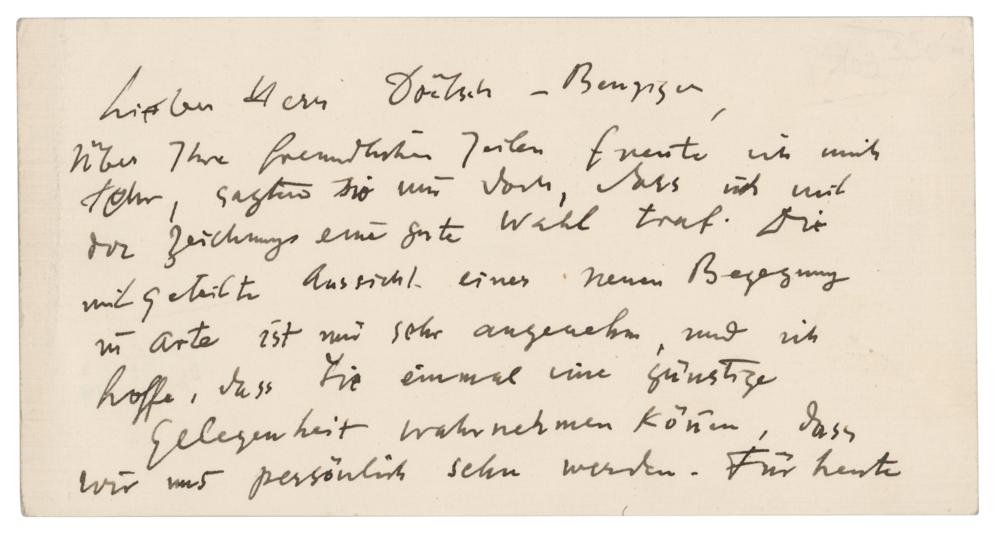 Lieber Herr Doetsch-Benziger,
Über Ihre freundlichen Zeilen freute ich mich
sehr, sagten sie mir doch, dass ich mit
der Zeichnung eine gute Wahl traf. Die
mitgeteilte Aussicht einer neuen Begegnung
in arte ist mir sehr angenehm, und ich
hoffe, dass Sie einmal eine günstige
Gelegenheit wahrnehmen können, dass
wir uns persönlich sehn werden. Für heute